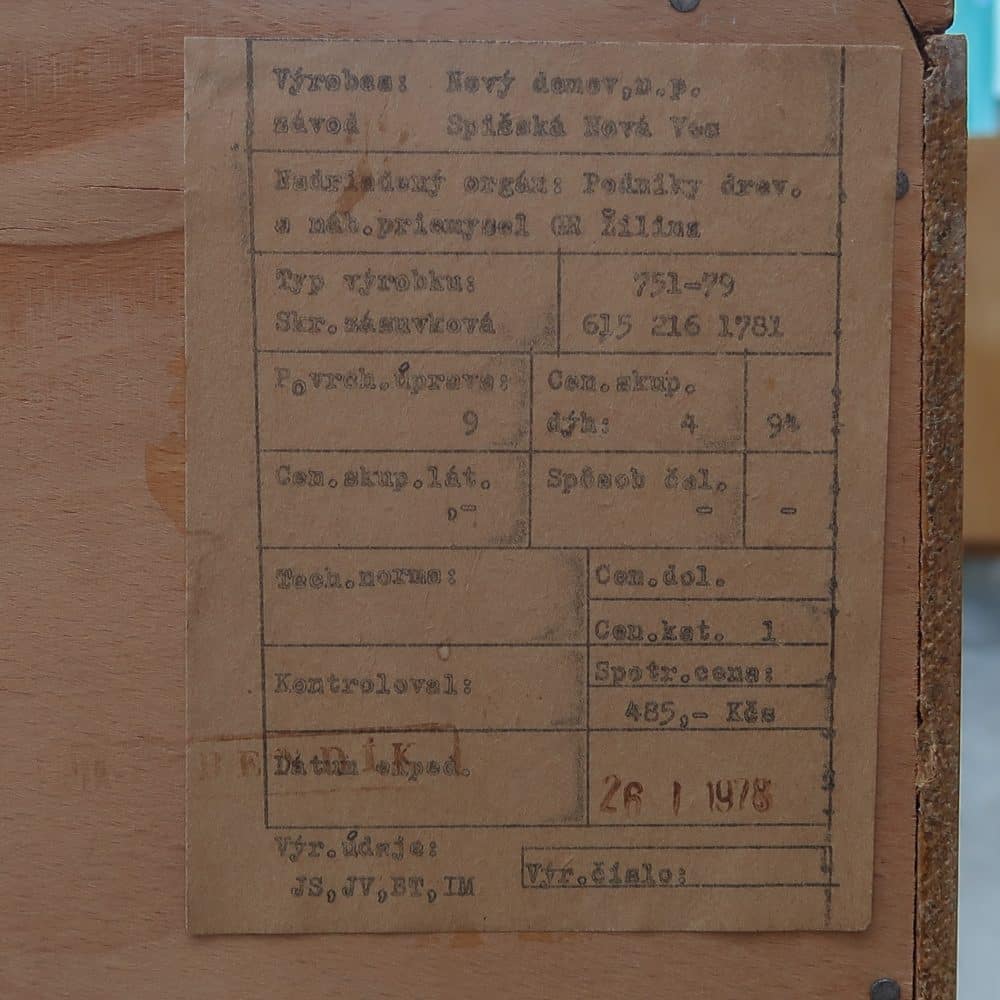 Výrobca: Nový domov,n.p.
závod Spišská Nová Ves
Nadriadený orgán: Podniky drev.
a náb.priemysel GR Žilina
Typ výrobku: 751-79
Skr.zásuvková 615 216 1781
Povrch.úprava: Cen.skup.
9 dýh: 4 9%
Cen.skup.lát. Spôsob čal.
,- - -
Tech.norma: Cen.dol.
Cen.kat. 1
Kontroloval: Spotr.cena:
485,- Kčs
Dátum exped. 26 1 1978
Výr.údaje:
JS,JV,BT,IM Výr.číslo: